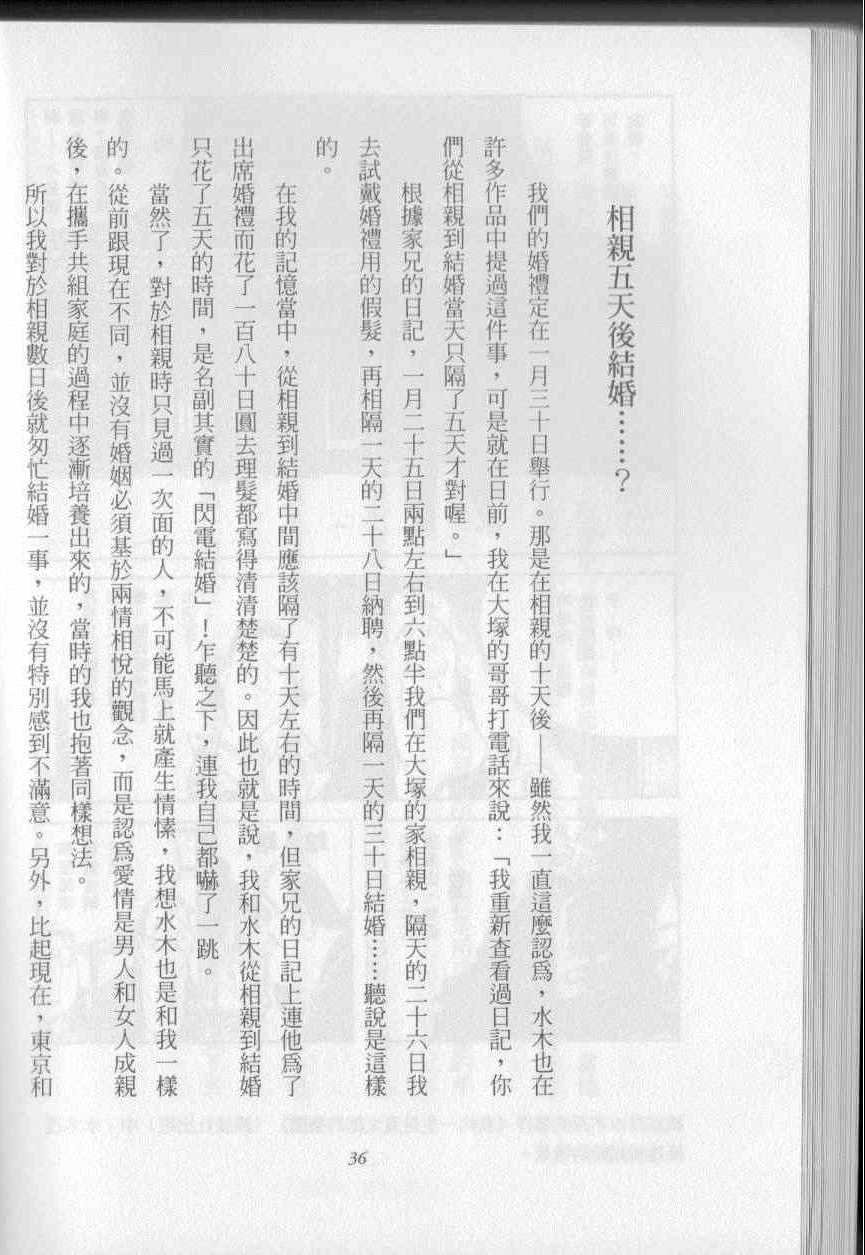 相親五天後結婚……？
我們的婚禮定在一月三十日舉行。那是在相親的十天後——雖然我一直這麼認為，水木也在
許多作品中提過這件事，可是就在日前，我在大塚的哥哥打電話來說：「我重新查看過日記，你
們從相親到結婚當天只隔了五天才對喔。」
根據家兄的日記，一月二十五日兩點左右到六點半我們在大塚的家相親，隔天的二十六日我
去試戴婚禮用的假髮，再相隔一天的二十八日納聘，然後再隔一天的三十日結婚……聽說是這樣
的。
在我的記憶當中，從相親到結婚中間應該隔了有十天左右的時間，但家兄的日記上連他為了
出席婚禮而花了一百八十日圓去理髮都寫得清清楚楚的。因此也就是說，我和水木從相親到結婚
只花了五天的時間，是名副其實的「閃電結婚」！乍聽之下，連我自己都嚇了一跳。
當然了，對於相親時只見過一次面的人，不可能馬上就產生情愫，我想水木也是和我一樣
的。從前跟現在不同，並沒有婚姻必須基於兩情相悅的觀念，而是認為愛情是男人和女人成親
後，在攜手共組家庭的過程中逐漸培養出來的，當時的我也抱著同樣想法。
所以我對於相親數日後就匆忙結婚一事，並沒有特別感到不滿意。另外，比起現在，東京和
36